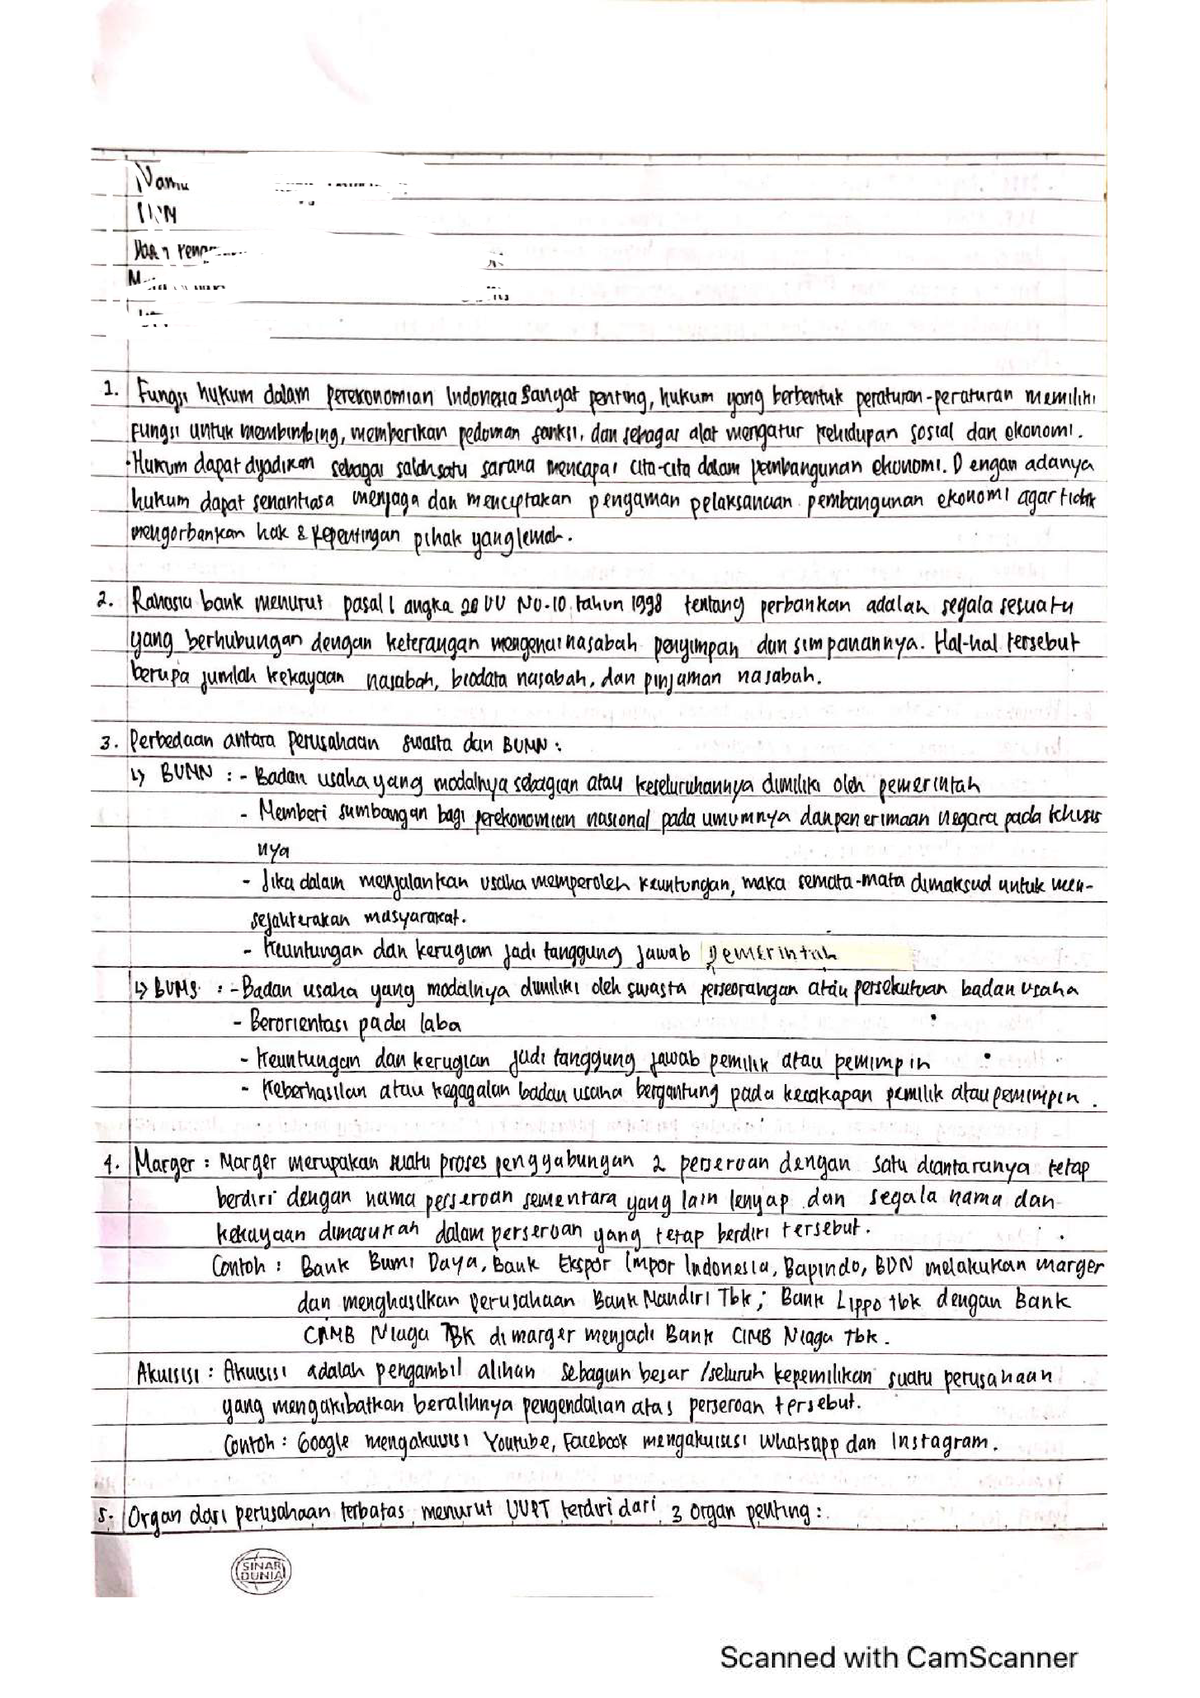 Nama
1. Fungsi hukum dalam perekonomian Indonesia sangat penting, hukum yang berbentuk peraturan-peraturan memiliki
fungsi untuk membimbing, memberikan pedoman sanksi, dan sebagai alat mengatur kehidupan sosial dan ekonomi.
Hukum dapat dijadikan sebagai salahsatu sarana mencapai cita-cita dalam pembangunan ekonomi. Dengan adanya
hukum dapat senantiasa menjaga dan menciptakan pengaman pelaksanaan pembangunan ekonomi agar tidak
mengorbankan hak & kepentingan pihak yang lemah.
2. Rahasia bank menurut pasal 1 angka 28 UU No.10 tahun 1998 tentang perbankan adalah segala sesuatu
yang berhubungan dengan keterangan mengenai nasabah penyimpan dan simpanannya. Hal-hal tersebut
berupa jumlah kekayaan nasabah, biodata nasabah, dan pinjaman nasabah.
3. Perbedaan antara perusahaan swasta dan BUMN :
↳ BUMN : - Badan usaha yang modalnya sebagian atau keseluruhannya dimiliki oleh pemerintah
- Memberi sumbangan bagi perekonomian nasional pada umumnya dan penerimaan negara pada khusus
nya
- Jika dalam menjalankan usaha memperoleh keuntungan, maka semata-mata dimaksud untuk men-
sejahterakan masyarakat.
- Keuntungan dan kerugian jadi tanggung jawab pemerintah
↳ BUMS : - Badan usaha yang modalnya dimiliki oleh swasta perseorangan atau persekutuan badan usaha
- Berorientasi pada laba
- Keuntungan dan kerugian jadi tanggung jawab pemilik atau pemimpin
- Keberhasilan atau kegagalan badan usaha bergantung pada kecakapan pemilik atau pemimpin.
4. Marger : Marger merupakan suatu proses penggabungan 2 perseroan dengan satu diantaranya tetap
berdiri dengan nama perseroan sementara yang lain lenyap dan segala nama dan
kekayaan dimasukan dalam perseroan yang tetap berdiri tersebut.
Contoh : Bank Bumi Daya, Bank Ekspor Impor Indonesia, Bapindo, BDN melakukan marger
dan menghasilkan perusahaan Bank Mandiri Tbk ; Bank Lippo tbk dengan Bank
CIMB Niaga TBK dimarger menjadi Bank CIMB Niaga Tbk.
Akuisisi : Akuisisi adalah pengambil alihan sebagian besar /seluruh kepemilikan suatu perusahaan
yang mengakibatkan beralihnya pengendalian atas perseroan tersebut.
Contoh : Google mengakuisisi Youtube, Facebook mengakuisisi Whatsapp dan Instagram.
5. Organ dari perusahaan terbatas menurut UUPT terdiri dari 3 organ penting :
SINAR
DUNIA
Scanned with CamScanner